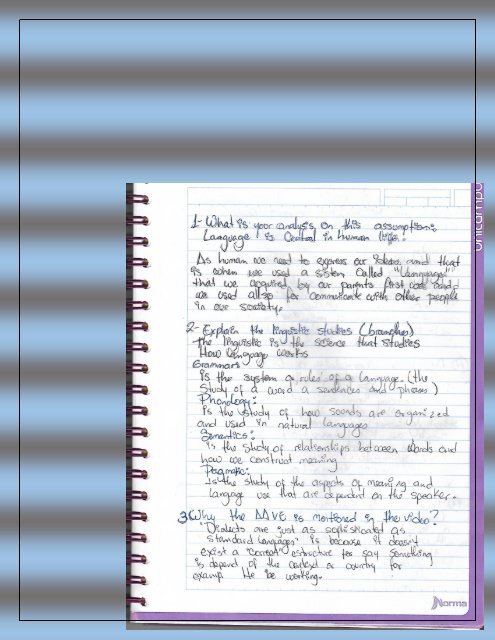 1- What is your analysis on this assumption:
Language is Central in human life.
As human we need to express our ideas and that
is when we used a sistem called "Language"
that we acquired by our parents first and
we used also for communicate with other people
in our society.
2- Explain the linguistic studies (branches)
the linguistic is the science that studies
How Language works
Grammar:
is the system a rules of a language. (the
study of a word a sentences and phrases)
Phonology:
is the study of how sounds are organized
and used in natural languages
Semantics:
is the study of relationships between words and
how we construct meaning
Pragmatic:
Is the study of the aspects of meaning and
language use that are dependent on the speaker.
3 Why the AAVE is mentioned in the video?
"Dialects are just as sophisticated as
standard languages" is because it doesn't
exist a "correct" estructure for say something
is depend of the context or country for
examp He be working.
Norma
unicampus